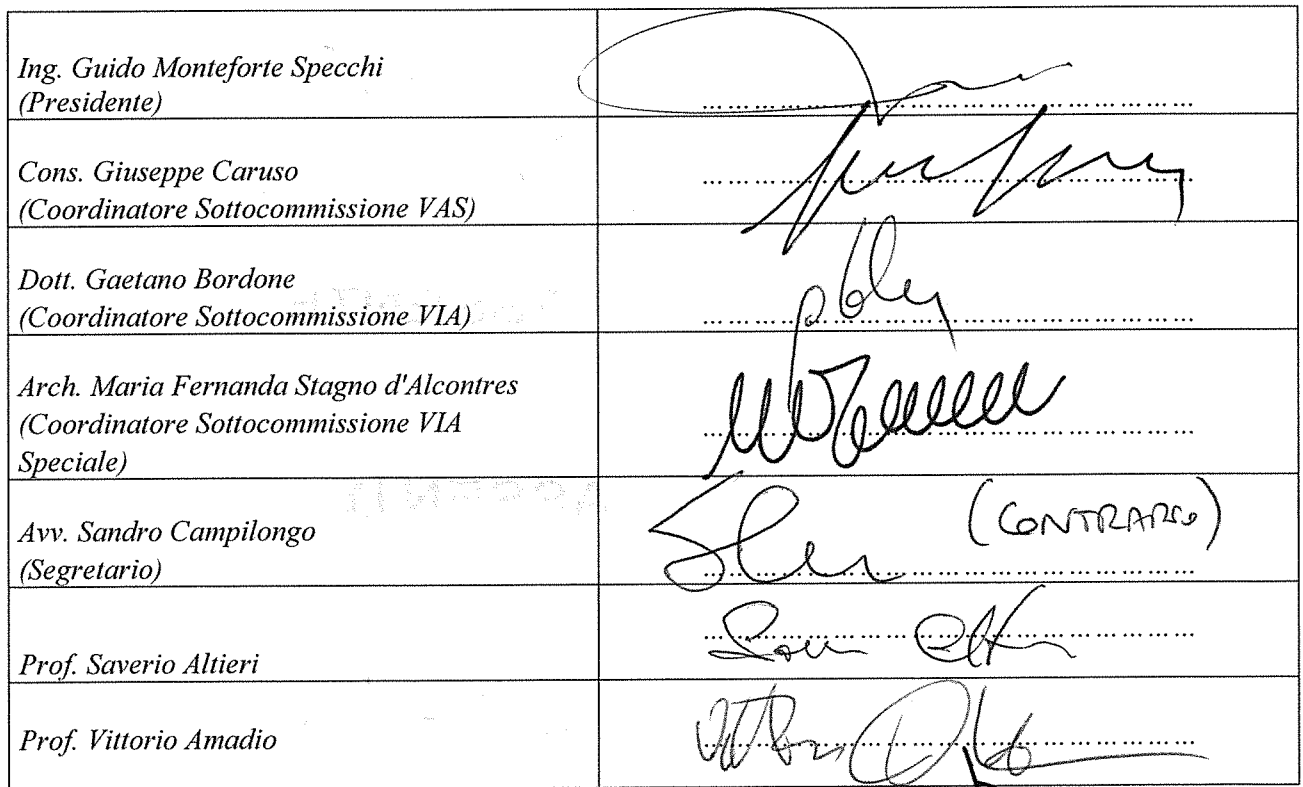 Ing. Guido Monteforte Specchi
(Presidente)
Cons. Giuseppe Caruso
(Coordinatore Sottocommissione VAS)
Dott. Gaetano Bordone
(Coordinatore Sottocommissione VIA)
Arch. Maria Fernanda Stagno d'Alcontres
(Coordinatore Sottocommissione VIA
Speciale)
Avv. Sandro Campilongo
(Segretario)
(CONTRARIO)
Prof. Saverio Altieri
Prof. Vittorio Amadio